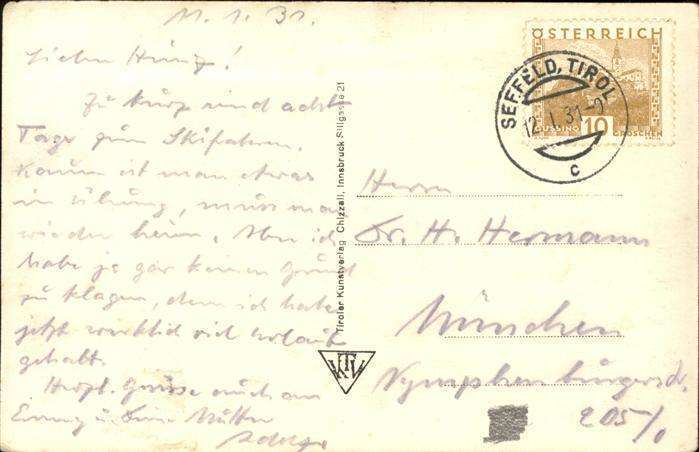 11.1.31.
Lieber Heinz!
Zu kurz sind acht
Tage zum Skifahren.
Kaum ist man etwas
in Übung, muss man
wieder heim. Aber ich
habe ja gar keinen Grund
zu klagen, denn ich habe
jetzt wirklich viel Urlaub
gehabt.
Herzl. Grüsse auch an
Deine Mutter
Tiroler Kunstverlag Chizzali, Innsbruck Sillgasse 21
KTV
ÖSTERREICH
10 GROSCHEN
GÜSSING
SEEFELD, TIROL
12.I.31
c
Herrn
Dr. H. Hermann
München
Nymphenburgerstr.
205/0